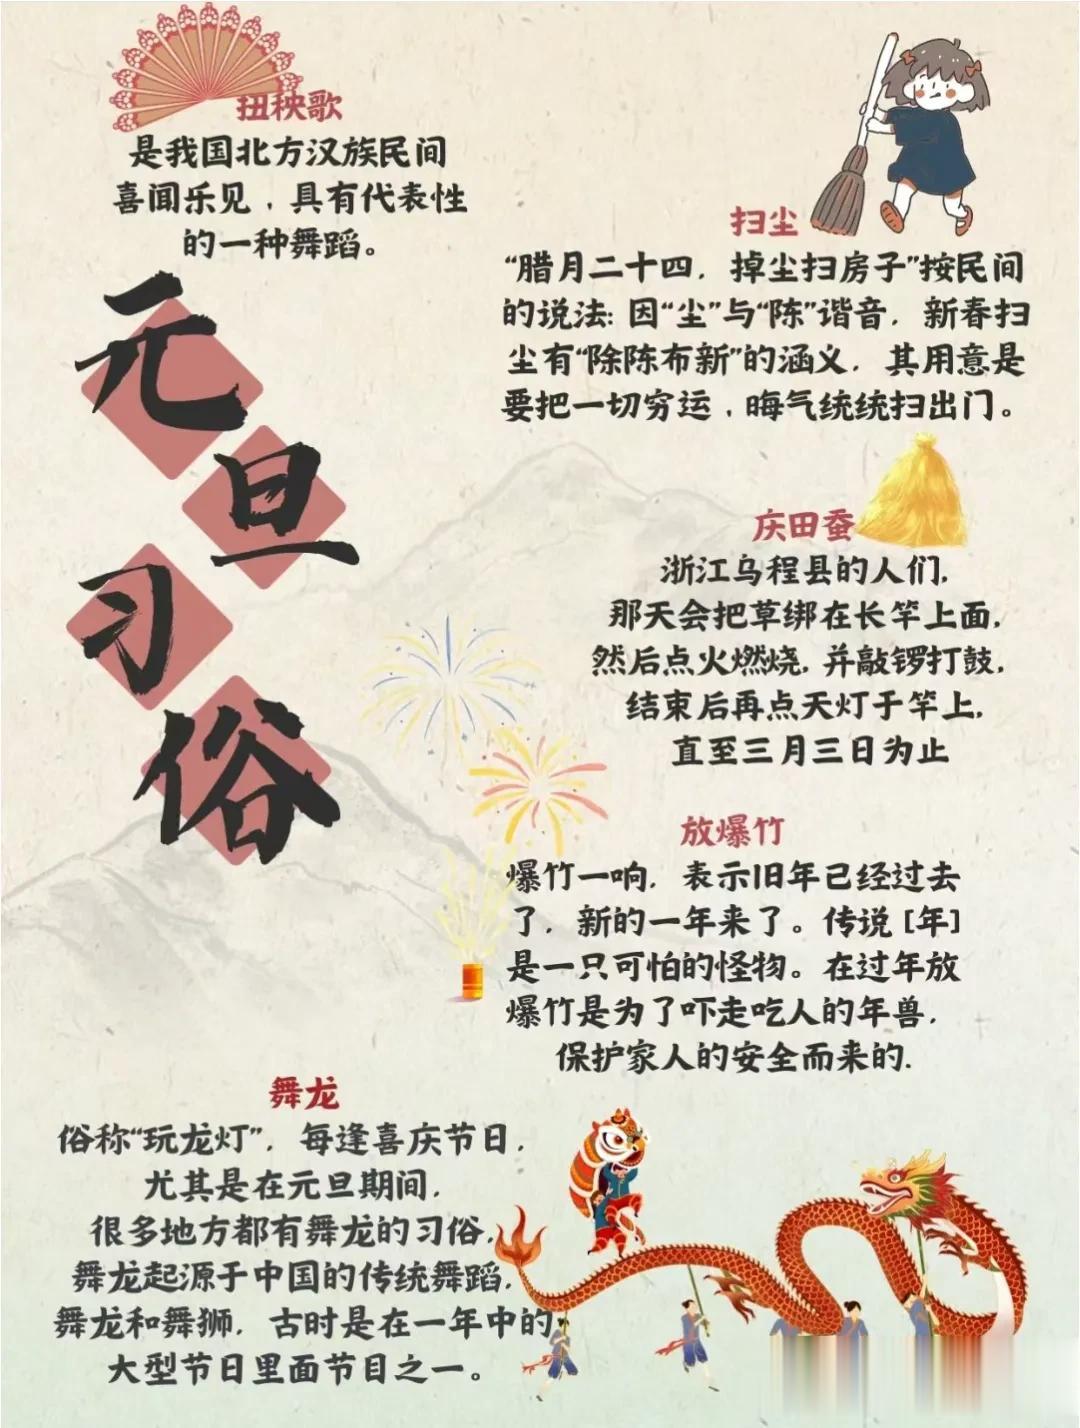 扭秧歌
是我国北方汉族民间
喜闻乐见，具有代表性
的一种舞蹈。
元旦习俗
扫尘
“腊月二十四，掉尘扫房子”按民间
的说法：因“尘”与“陈”谐音，新春扫
尘有“除陈布新”的涵义，其用意是
要把一切穷运，晦气统统扫出门。
庆田蚕
浙江乌程县的人们，
那天会把草绑在长竿上面，
然后点火燃烧，并敲锣打鼓，
结束后再点天灯于竿上，
直至三月三日为止
放爆竹
爆竹一响，表示旧年已经过去
了，新的一年来了。传说［年］
是一只可怕的怪物。在过年放
爆竹是为了吓走吃人的年兽，
保护家人的安全而来的.
舞龙
俗称“玩龙灯”，每逢喜庆节日，
尤其是在元旦期间，
很多地方都有舞龙的习俗，
舞龙起源于中国的传统舞蹈，
舞龙和舞狮，古时是在一年中的
大型节日里面节目之一。